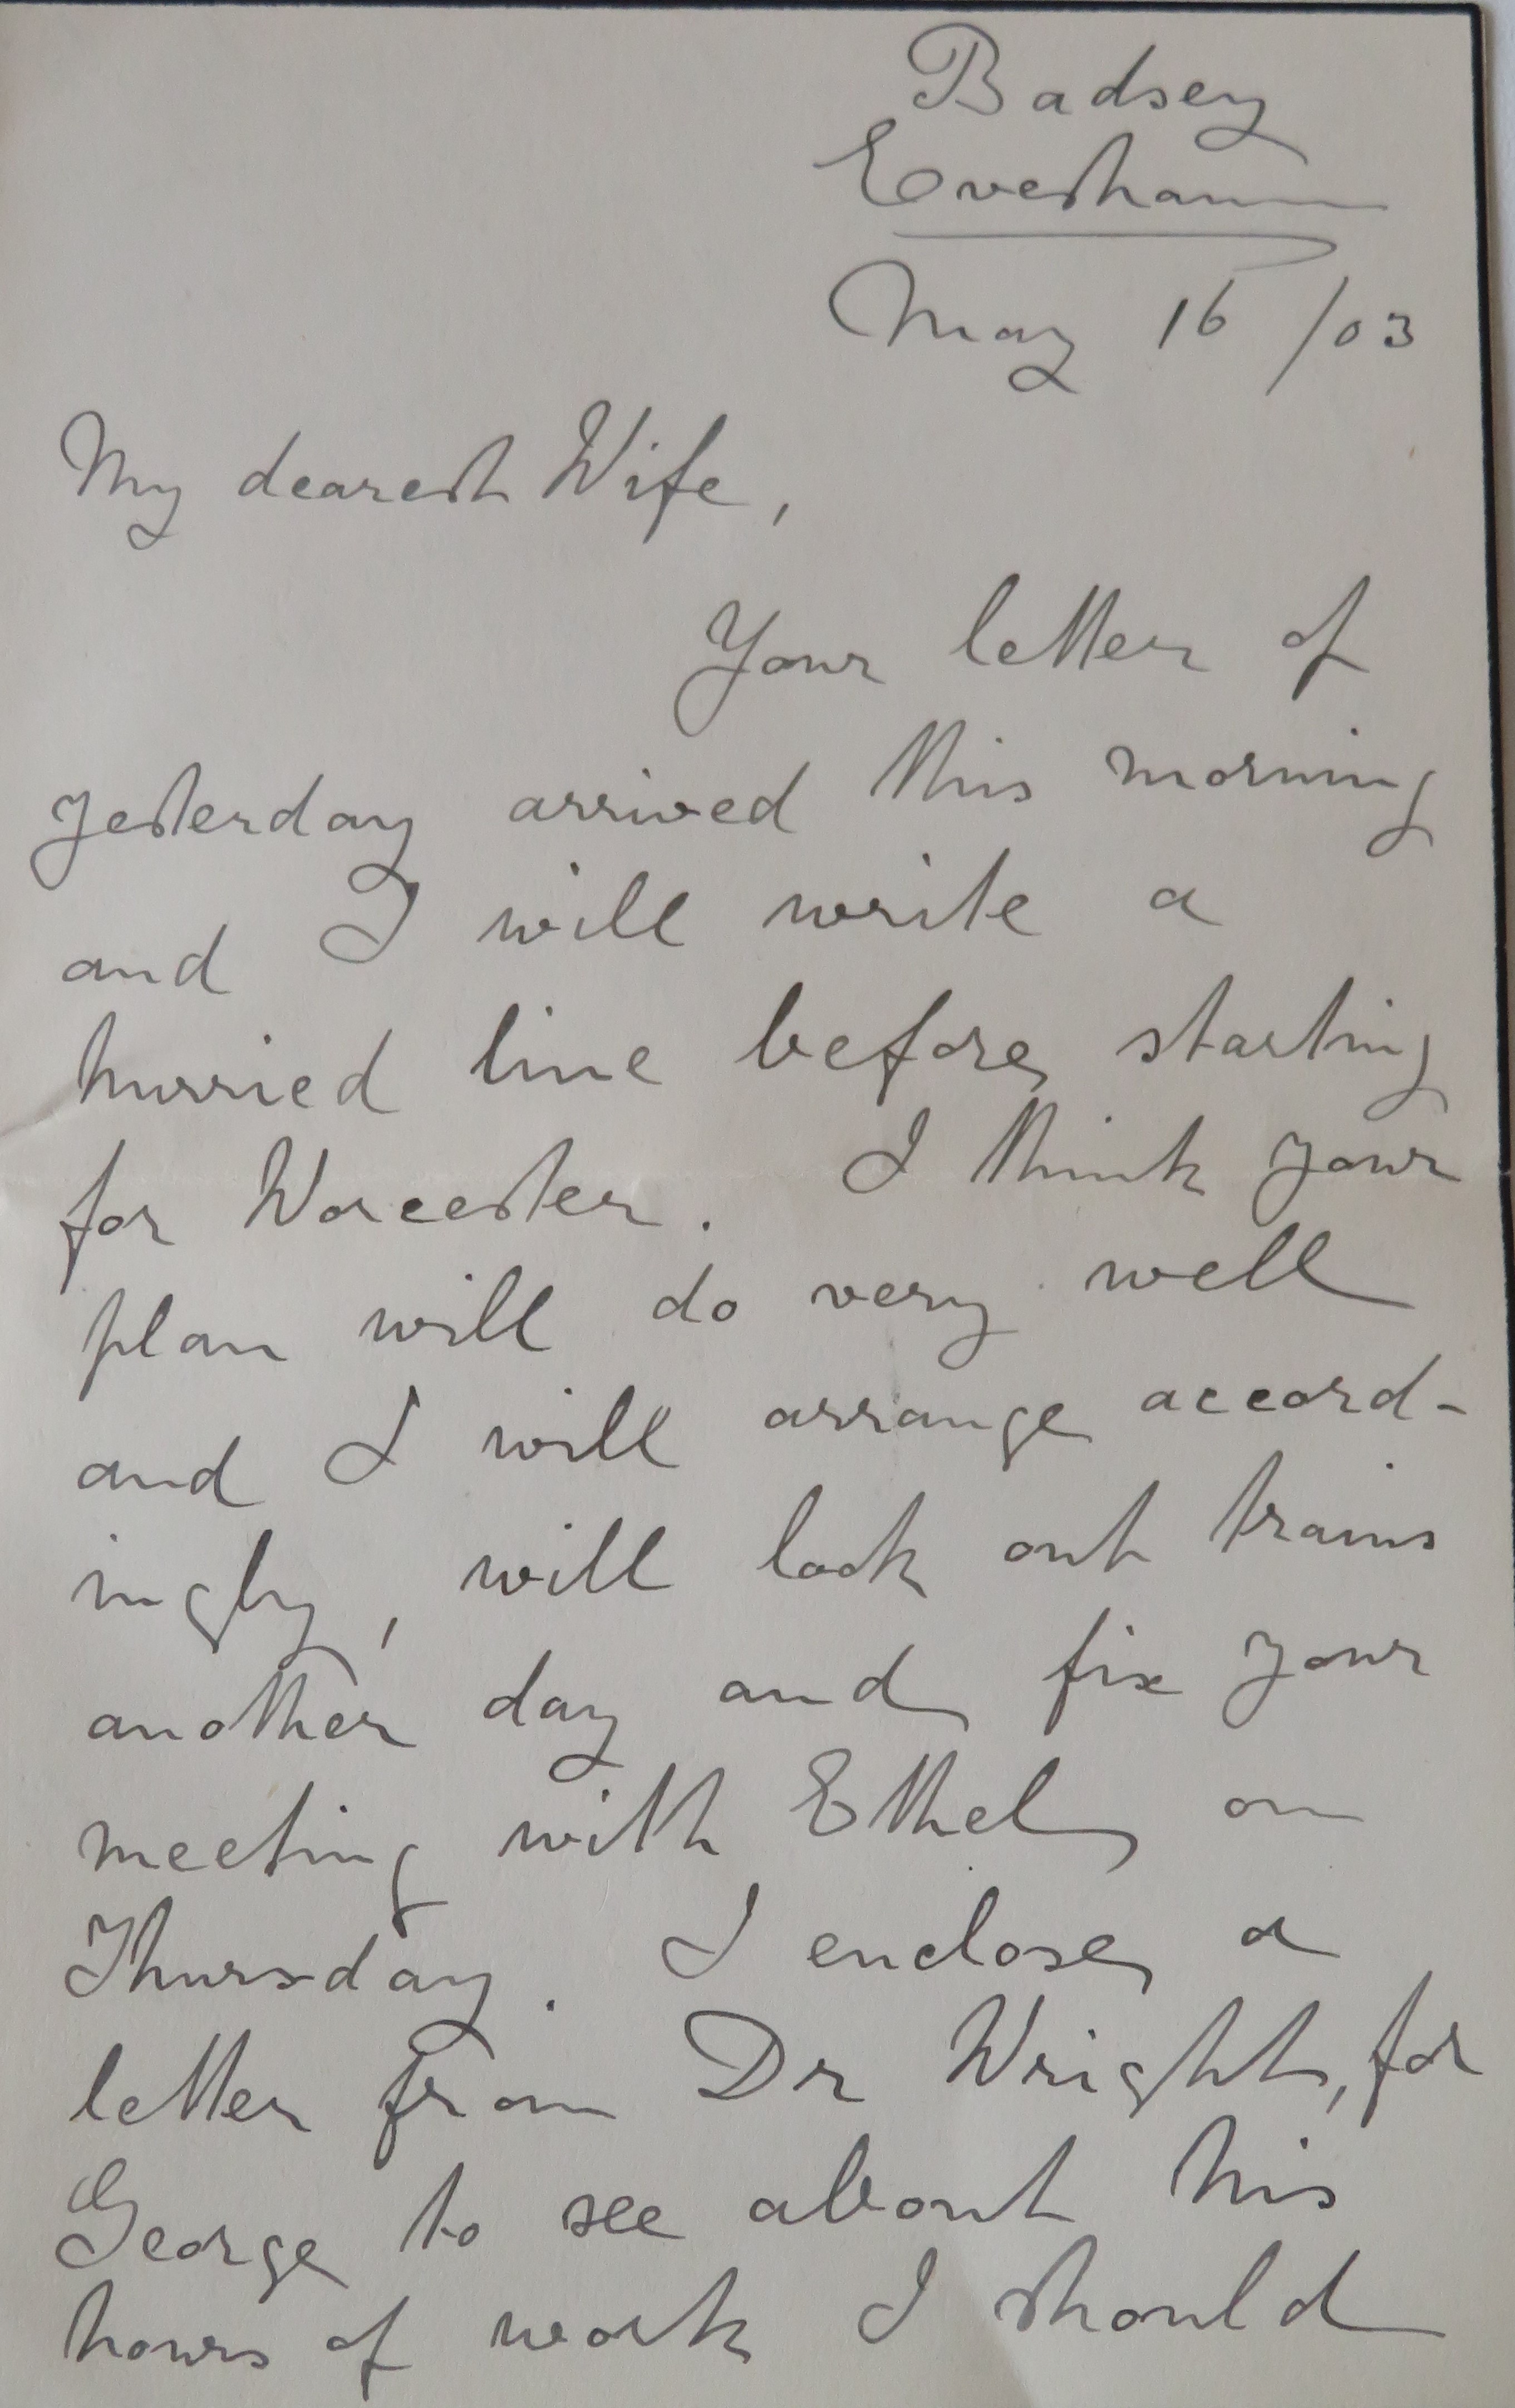 Badsey
Evesham
May 16 /03
My dearest Wife,
Your letter of
yesterday arrived this morning
and I will write a
hurried line before starting
for Worcester. I think your
plan will do very well
and I will arrange accord-
ingly, will look out trains
another day and fix your
meeting with Ethel on
Thursday. I enclose a
letter from Dr Wright, for
George to see about his
hours of work I should